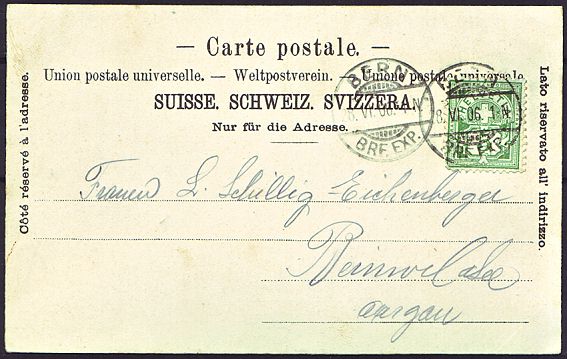 — Carte postale. —
Union postale universelle. — Weltpostverein. — Unione postale universale
SUISSE. SCHWEIZ. SVIZZERA.
Nur für die Adresse.
Côté réservé à l'adresse.
Lato riservato all' indirizzo.
BERN
8. VI. 06. 1-N
BRF. EXP.
8. VI. 06. 1-N
BRF. EXP.
HELVETIA
L. Schillig Eichenberger
Beinwil a/See
Aargau